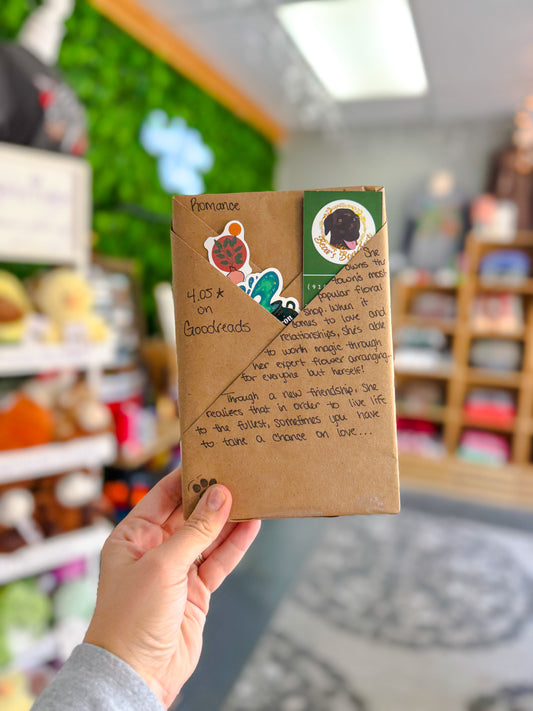 Romance
4.05 *
on
Goodreads
She
owns the
town's most
popular floral
shop. When it
comes to love and
relationships, she's able
to work magic through
her expert flower arranging
for everyone but herself!
Through a new friendship, she
realizes that in order to live life
to the fullest, sometimes you have
to take a chance on love....
Bear's